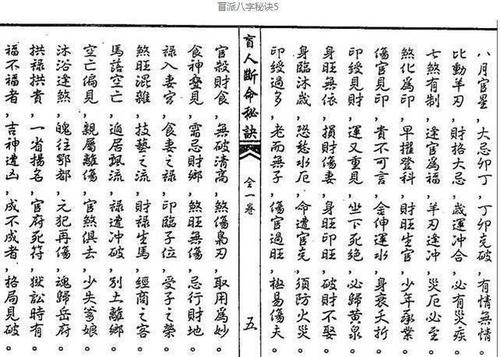 盲派八字秘诀5
八月官星，大忌卯丁，丁卯克破，有情無情。
比動羊刃，財格大忌，歲運冲合，必有災疾。
七煞有制，逢官為禍，羊刃逢冲，災厄必至。
煞化為印，早擢登科，財旺生官，少年承業。
傷官見印，貴不可言，金伸運水，身衰夭折。
印綬見財，運又重見，坐下死絕，必歸黃泉。
身旺無依，損財傷妻，身旺印旺，破財不聚。
身臨沐歲，恐懼水厄，命遭官克，須防火災。
印綬過多，老而無子，傷官過旺，極易傷夫。
盲人斷命秘訣 全一卷 五
官殺財食，無破清高，煞傷梟刃，取用為妙。
食神疊見，需忌財鄉，煞旺無傷，忌行財地。
祿入妻宮，食妻之祿，印臨子位，受子之榮。
煞旺混雜，技藝之流，財祿坐馬，經商之客。
馬落空亡，遁居飄流，祿遭冲破，別土離鄉。
空亡偏見，親屬離傷，官煞俱去，少失爹娘。
沐浴逢煞，魄往鄷都，元犯再傷，魂歸岳府。
拱祿拱貴，一省揚名，官府死符，獄訟時有。
福不福者，吉神遭凶，成不成者，格局見破。